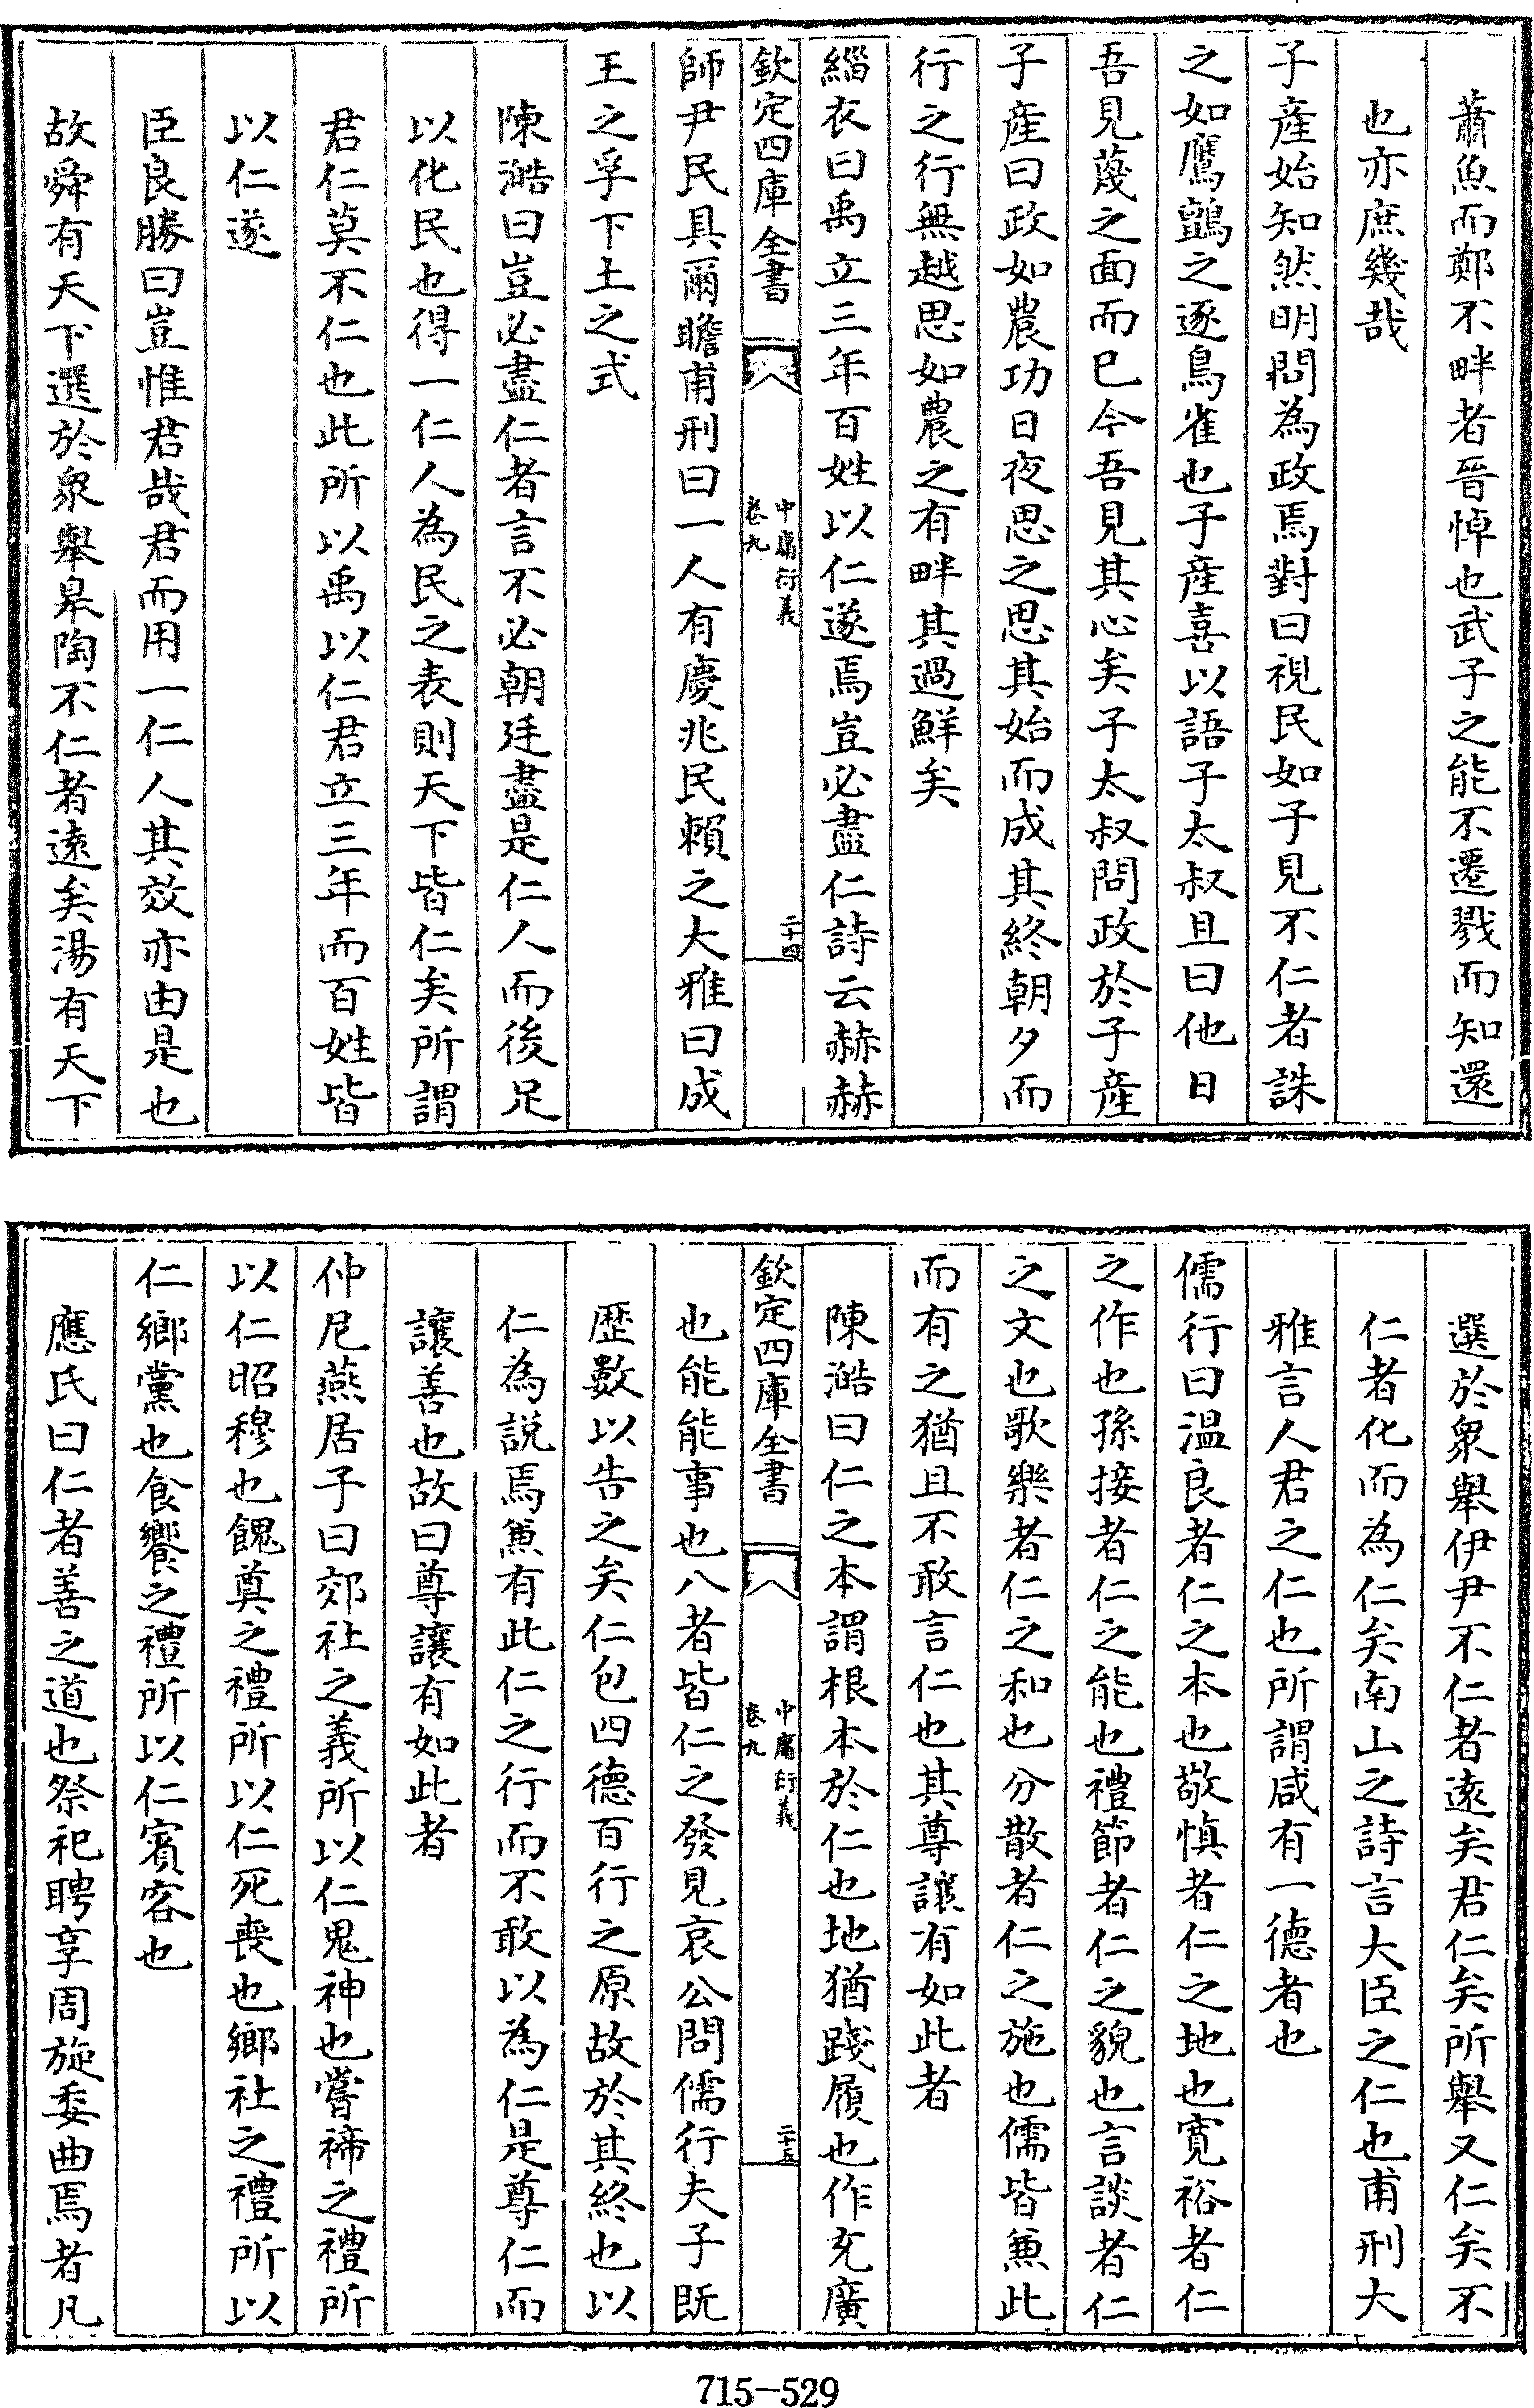 蕭魚而鄭不畔者晉悼也武子之能不遷戮而知還
也亦庶幾哉
子産始知然明問為政焉對曰視民如子見不仁者誅
之如鷹鸇之逐鳥雀也子産喜以語子太叔且曰他日
吾見蔑之面而已今吾見其心矣子太叔問政於子産
子産曰政如農功日夜思之思其始而成其終朝夕而
行之行無越思如農之有畔其過鮮矣
緇衣曰禹立三年百姓以仁遂焉豈必盡仁詩云赫赫
欽定四庫全書
中庸衍義
卷九
二十四
師尹民具爾瞻甫刑曰一人有慶兆民賴之大雅曰成
王之孚下土之式
陳澔曰豈必盡仁者言不必朝廷盡是仁人而後足
以化民也得一仁人為民之表則天下皆仁矣所謂
君仁莫不仁也此所以禹以仁君立三年而百姓皆
以仁遂
臣良勝曰豈惟君哉君而用一仁人其效亦由是也
故舜有天下選於衆舉臯陶不仁者遠矣湯有天下
選於衆舉伊尹不仁者遠矣君仁矣所舉又仁矣不
仁者化而為仁矣南山之詩言大臣之仁也甫刑大
雅言人君之仁也所謂咸有一德者也
儒行曰温良者仁之本也敬慎者仁之地也寛裕者仁
之作也孫接者仁之能也禮節者仁之貌也言談者仁
之文也歌樂者仁之和也分散者仁之施也儒皆兼此
而有之猶且不敢言仁也其尊讓有如此者
陳澔曰仁之本謂根本於仁也地猶踐履也作充廣
欽定四庫全書
中庸衍義
卷九
二十五
也能能事也八者皆仁之發見哀公問儒行夫子既
歴數以告之矣仁包四德百行之原故於其終也以
仁為説焉兼有此仁之行而不敢以為仁是尊仁而
讓善也故曰尊讓有如此者
仲尼燕居子曰郊社之義所以仁鬼神也嘗禘之禮所
以仁昭穆也餽奠之禮所以仁死喪也鄉社之禮所以
仁鄉黨也食饗之禮所以仁賓客也
應氏曰仁者善之道也祭祀聘享周旋委曲焉者凡
715-529